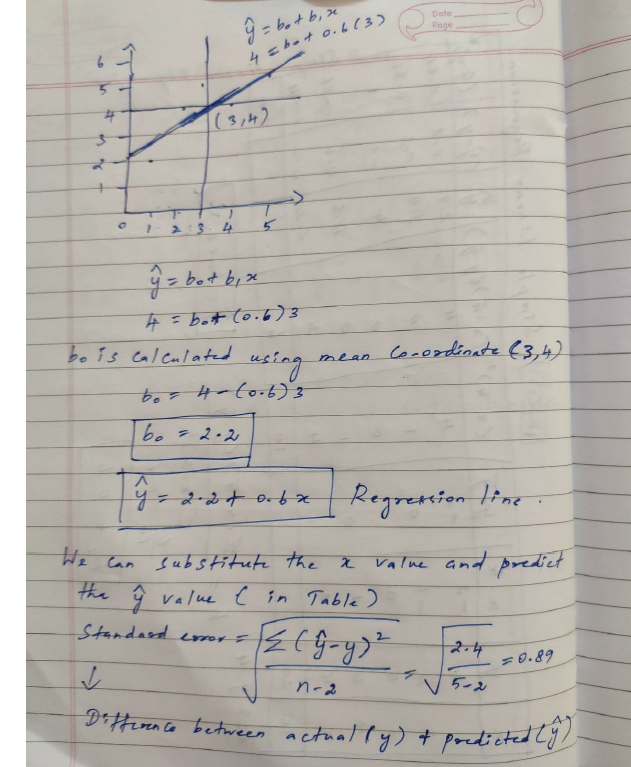 ŷ = b₀ + b₁x
4 = b₀ + 0.6(3)
Date
Page
6
5
4
(3,4)
3
2
1
0 1 2 3 4 5
ŷ = b₀ + b₁x
4 = b₀ + (0.6)3
b₀ is calculated using mean Co-ordinate (3,4)
b₀ = 4 - (0.6)3
b₀ = 2.2
ŷ = 2.2 + 0.6x Regression line.
We can substitute the x value and predict
the ŷ value (in Table)
Standard error = √(Σ(ŷ-y)² / n-2) = √(2.4 / 5-2) = 0.89
↓
Difference between actual (y) + predicted (ŷ)